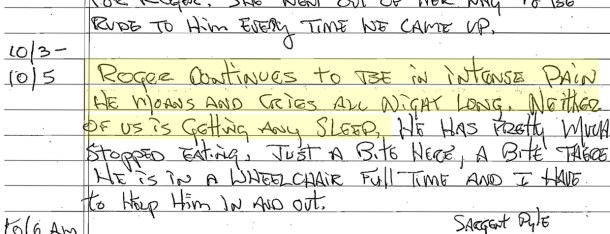 FOR ROGER. SHE WENT OUT OF HER WAY TO BE
RUDE TO HIM EVERY TIME WE CAME UP.
10/3-
10/5 ROGER CONTINUES TO BE IN INTENSE PAIN
HE MOANS AND CRIES ALL NIGHT LONG. NEITHER
OF US IS GETTING ANY SLEEP. HE HAS PRETTY MUCH
STOPPED EATING. JUST A BITE HERE, A BITE THERE
HE IS IN A WHEELCHAIR FULL TIME AND I HAVE
TO HELP HIM IN AND OUT.
10/6 AM SARGENT PYLE